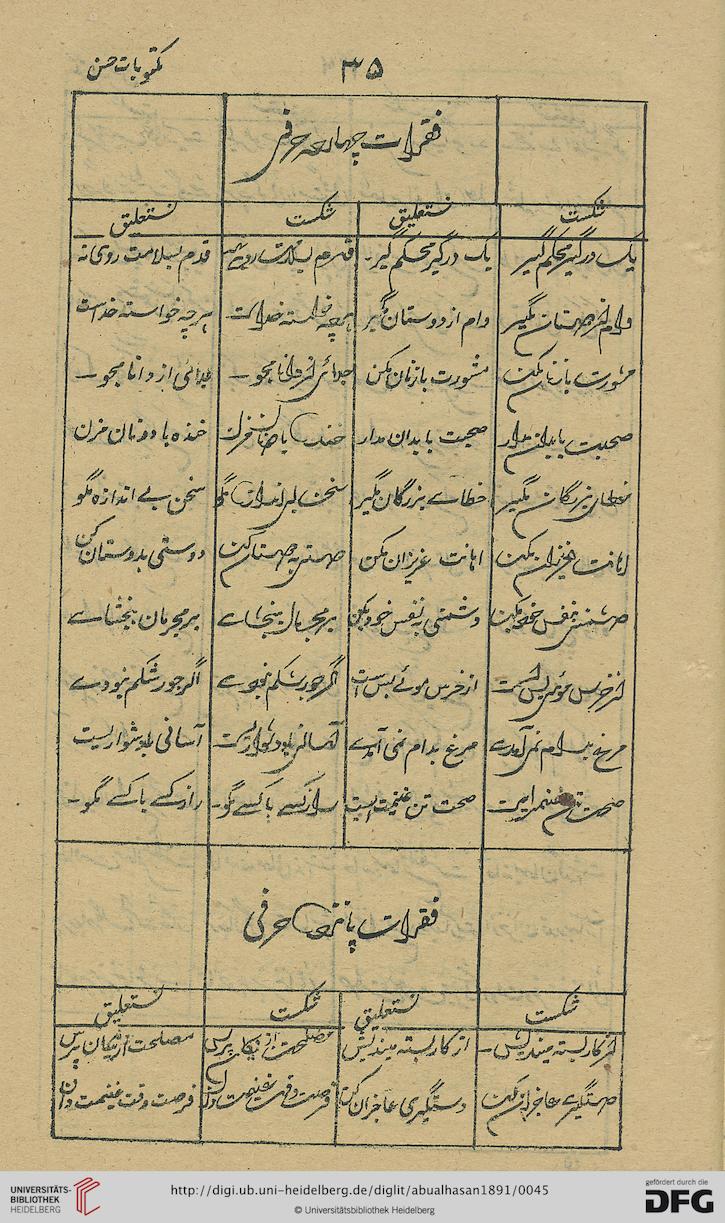 مکتوبات حسن
۳۵
فقرات چہاردہ حرفی
شکست نستعلیق شکست نستعلیق
یک درگیر محکم گیر یک درگیر محکم گیر قدم بسلامت روی نہ قدم بسلامت روی نہ
وام از دوستان مگیر وام از دوستان مگیر ہرچہ خواستہ خداست ہرچہ خواستہ خداست
مشورت بازنان مکن مشورت بازنان مکن جدائی از دانا مجو جدائی از دانا مجو
صحبت بابدان مدار صحبت بابدان مدار خندہ با دونان مزن خندہ با دونان مزن
خطاے بزرگان مگیر خطاے بزرگان مگیر سخن بے اندازہ مگو سخن بے اندازہ مگو
اہانت عزیزان مکن اہانت عزیزان مکن دوستی بدوستان کن دوستی بدوستان کن
دشمنی بنفس خود بکن دشمنی بہ نفس خود بکن بر مجرمان ببخشاے بر مجرمان ببخشاے
از خرس موئے بس است از خرس موئے بس است اگر جور شکم نبودے اگر جور شکم نبودے
مرغ بدام نمی آمدے مرغ بدام نمی آمدے آسانی بادشواریست آسانی بادشواریست
صحت تن غنیمت است صحت تن غنیمت است راز کسے با کسے مگو راز کسے با کسے مگو
فقرات پانزدہ حرفی
شکست نستعلیق شکست نستعلیق
از کار بستہ میندیش از کار بستہ میندیش مصلحت از نیکان پرس مصلحت از نیکان پرس
دستگیری عاجزان کن دستگیری عاجزان کن فرصت وقت غنیمت دان فرصت وقت غنیمت دان
UNIVERSITÄTS-
BIBLIOTHEK
HEIDELBERG
http://digi.ub.uni-heidelberg.de/diglit/abualhasan1891/0045
© Universitätsbibliothek Heidelberg
gefördert durch die
DFG